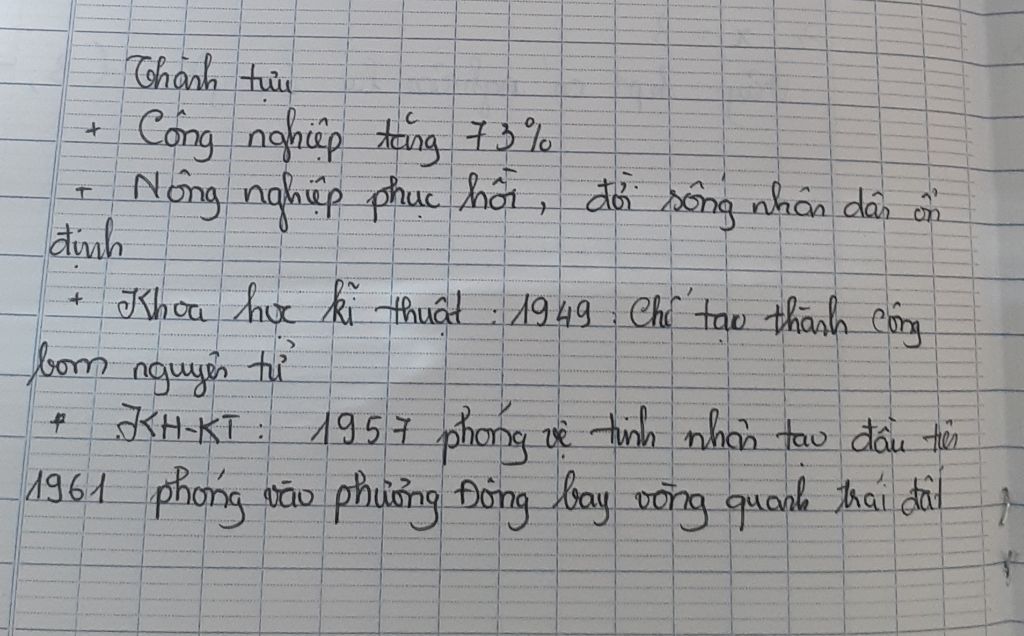 Thành tựu
+ Công nghiệp tăng 73%
+ Nông nghiệp phục hồi, đời sống nhân dân ổn
định
+ Khoa học kĩ thuật: 1949: Chế tạo thành công
bom nguyên tử
+ KH-KT: 1957 phóng vệ tinh nhân tạo đầu tiên
1961 phóng vào phương Đông bay vòng quanh trái đất